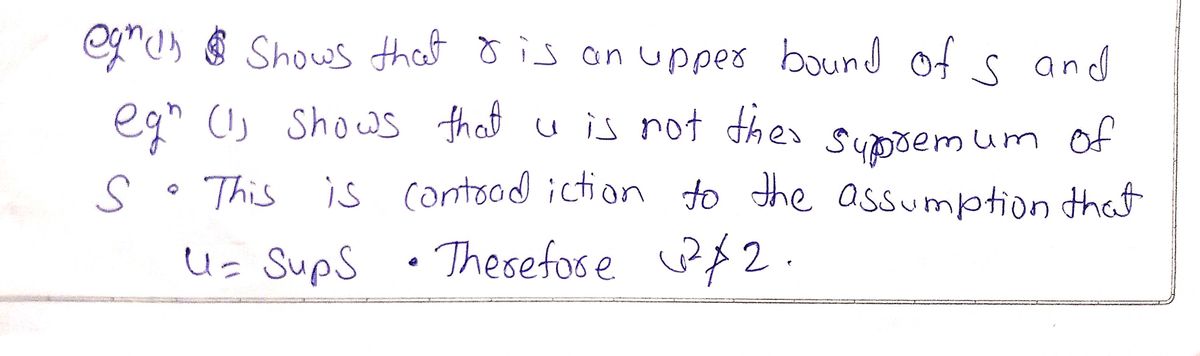 eqⁿ (1) Shows that r is an upper bound of s and
eqⁿ (1) shows that u is not the supremum of
S . This is contradiction to the assumption that
u = Sup S . Therefore u² ≯ 2 .